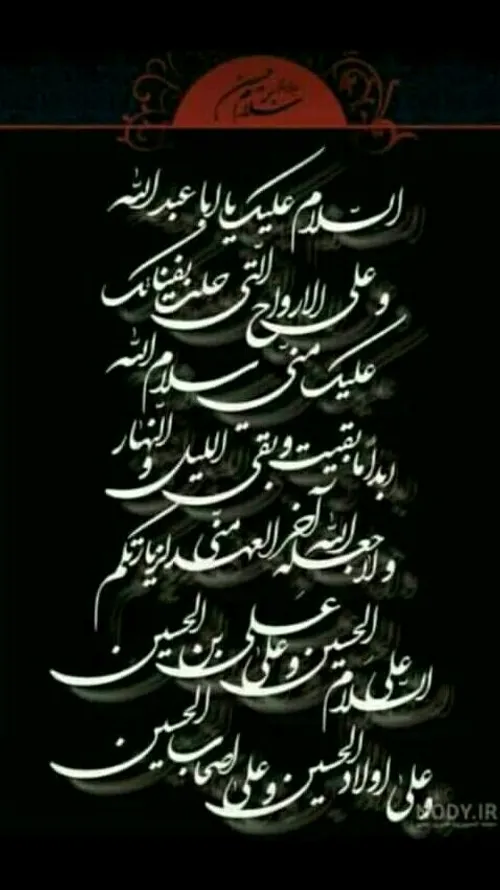 السلام علیک یا ابا عبد الله
و علی الارواح التی حلت بفنائک
علیک منی سلام الله
ابدا ما بقیت و بقی اللیل و النهار
و لا جعله الله آخر العهد منی لزیارتکم
السلام علی الحسین و علی علی بن الحسین
و علی اولاد الحسین و علی اصحاب الحسین
NODY.IR